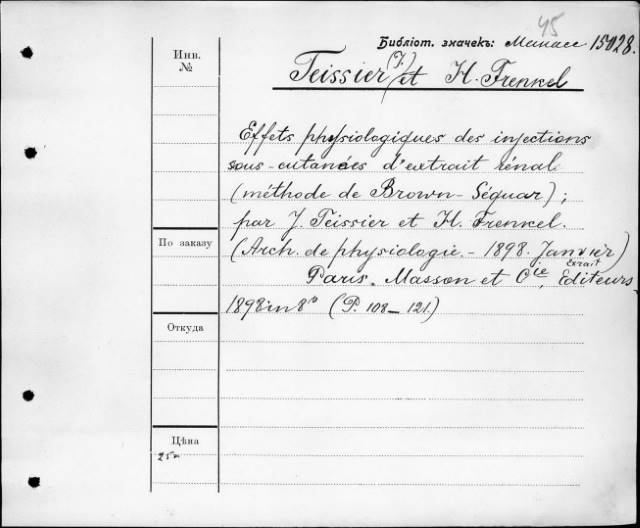 45
Библіот. значекъ: Манасс 15028.
Инв. №
Teissier (J.) et H. Frenkel
Effets physiologiques des injections
sous-cutanées d'extrait rénal
(méthode de Brown-Séquar);
par J. Teissier et H. Frenkel.
По заказу
(Arch. de physiologie. - 1898. Janvier)
Extrait
Paris. Masson et Cie, Editeurs
1898 in 8° (P. 108-121.)
Откуда
Цѣна